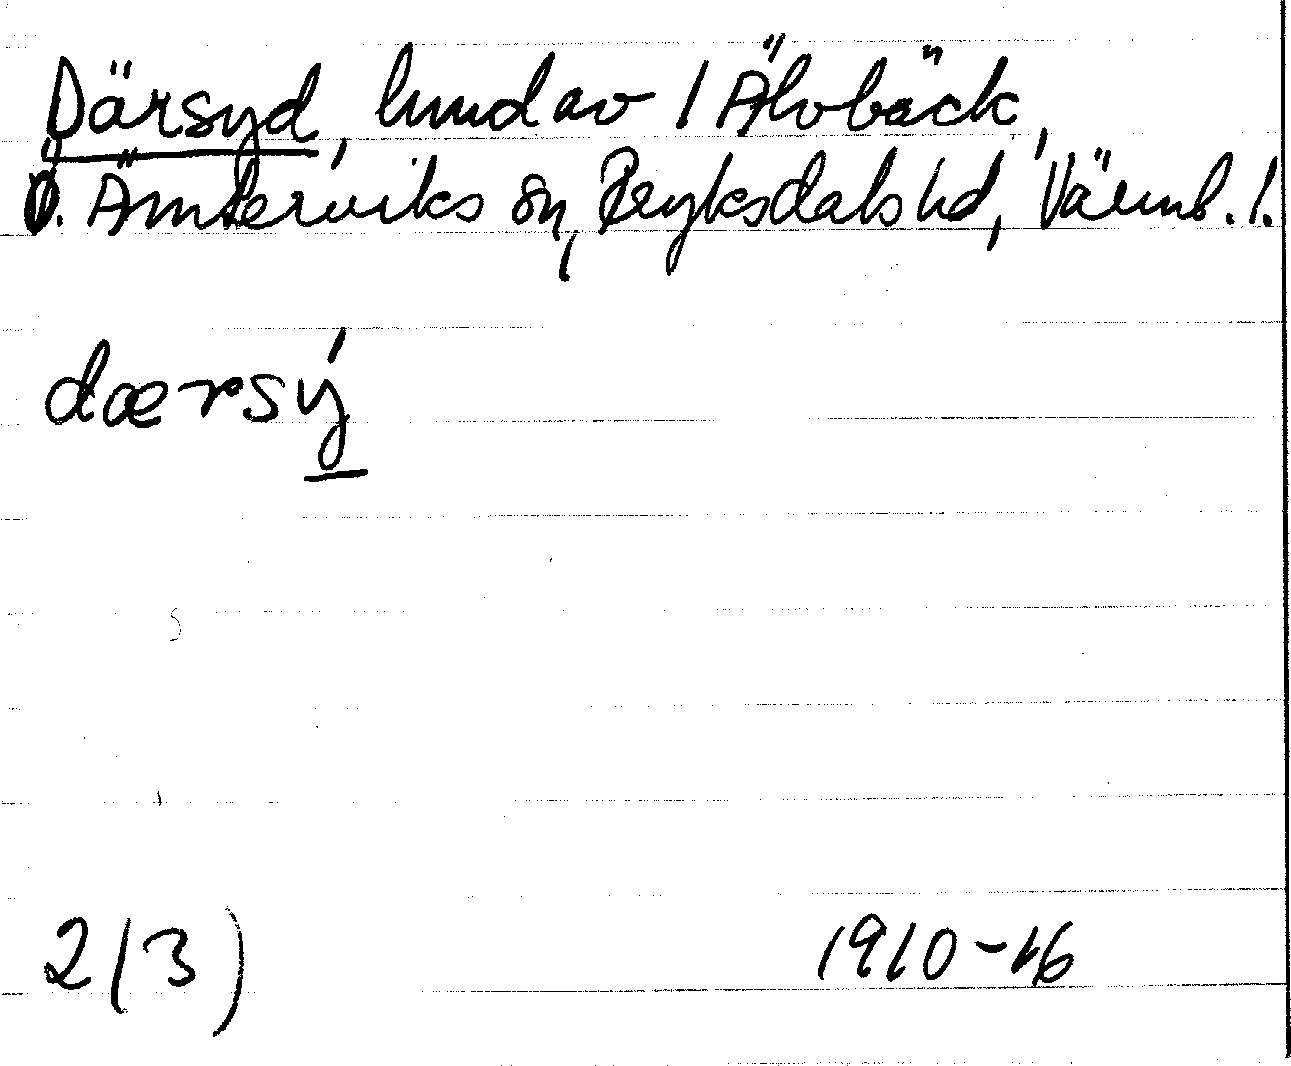 Därsyd, lund av 1 Älvbäck,
Ö. Ämterviks sn, Fryksdals hd, Värml. l.
dærsý
2(3)
1910-16